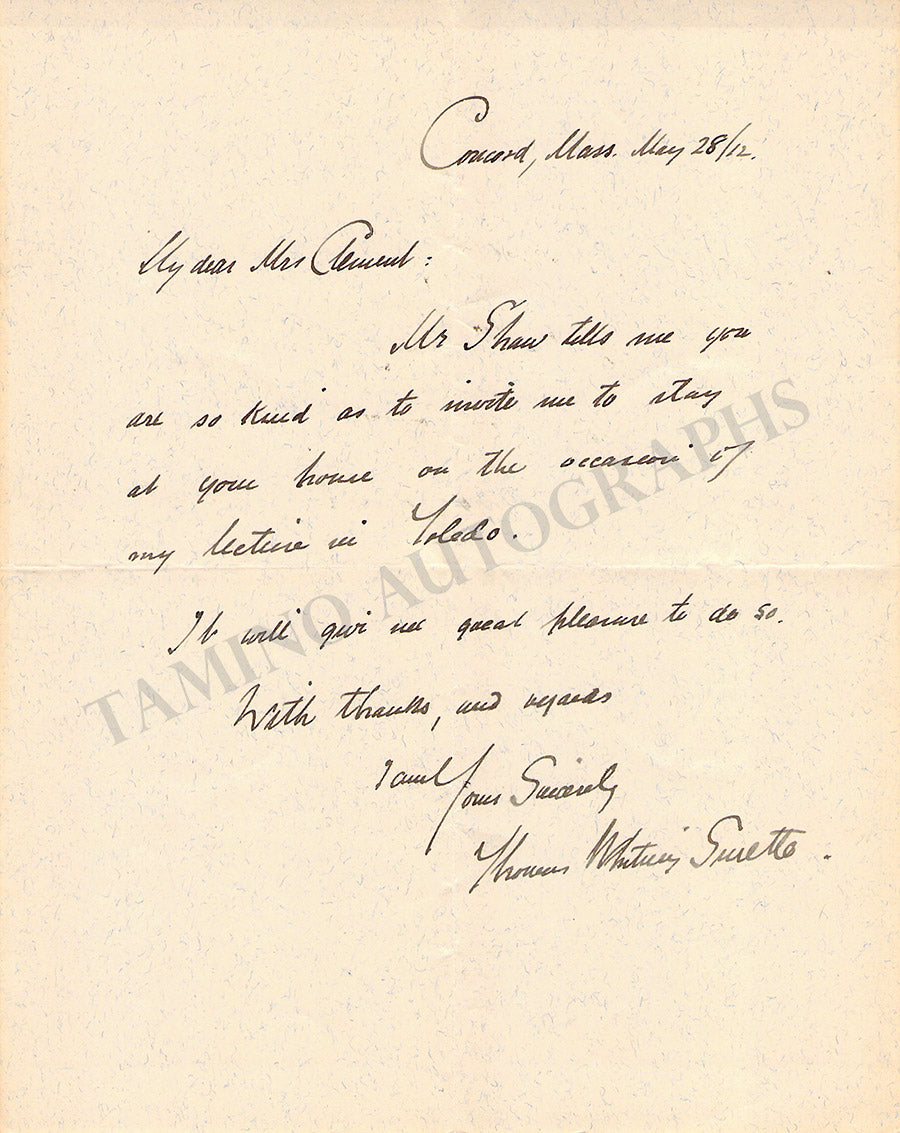 Concord, Mass. May 28/12.
My dear Mrs Clement:
Mr Shaw tells me you
are so kind as to invite me to stay
at your house on the occasion of
my lecture in Toledo.
It will give me great pleasure to do so.
With thanks, and regards
I am
Yours Sincerely
Thomas Whitney Surette.
TAMINO AUTOGRAPHS